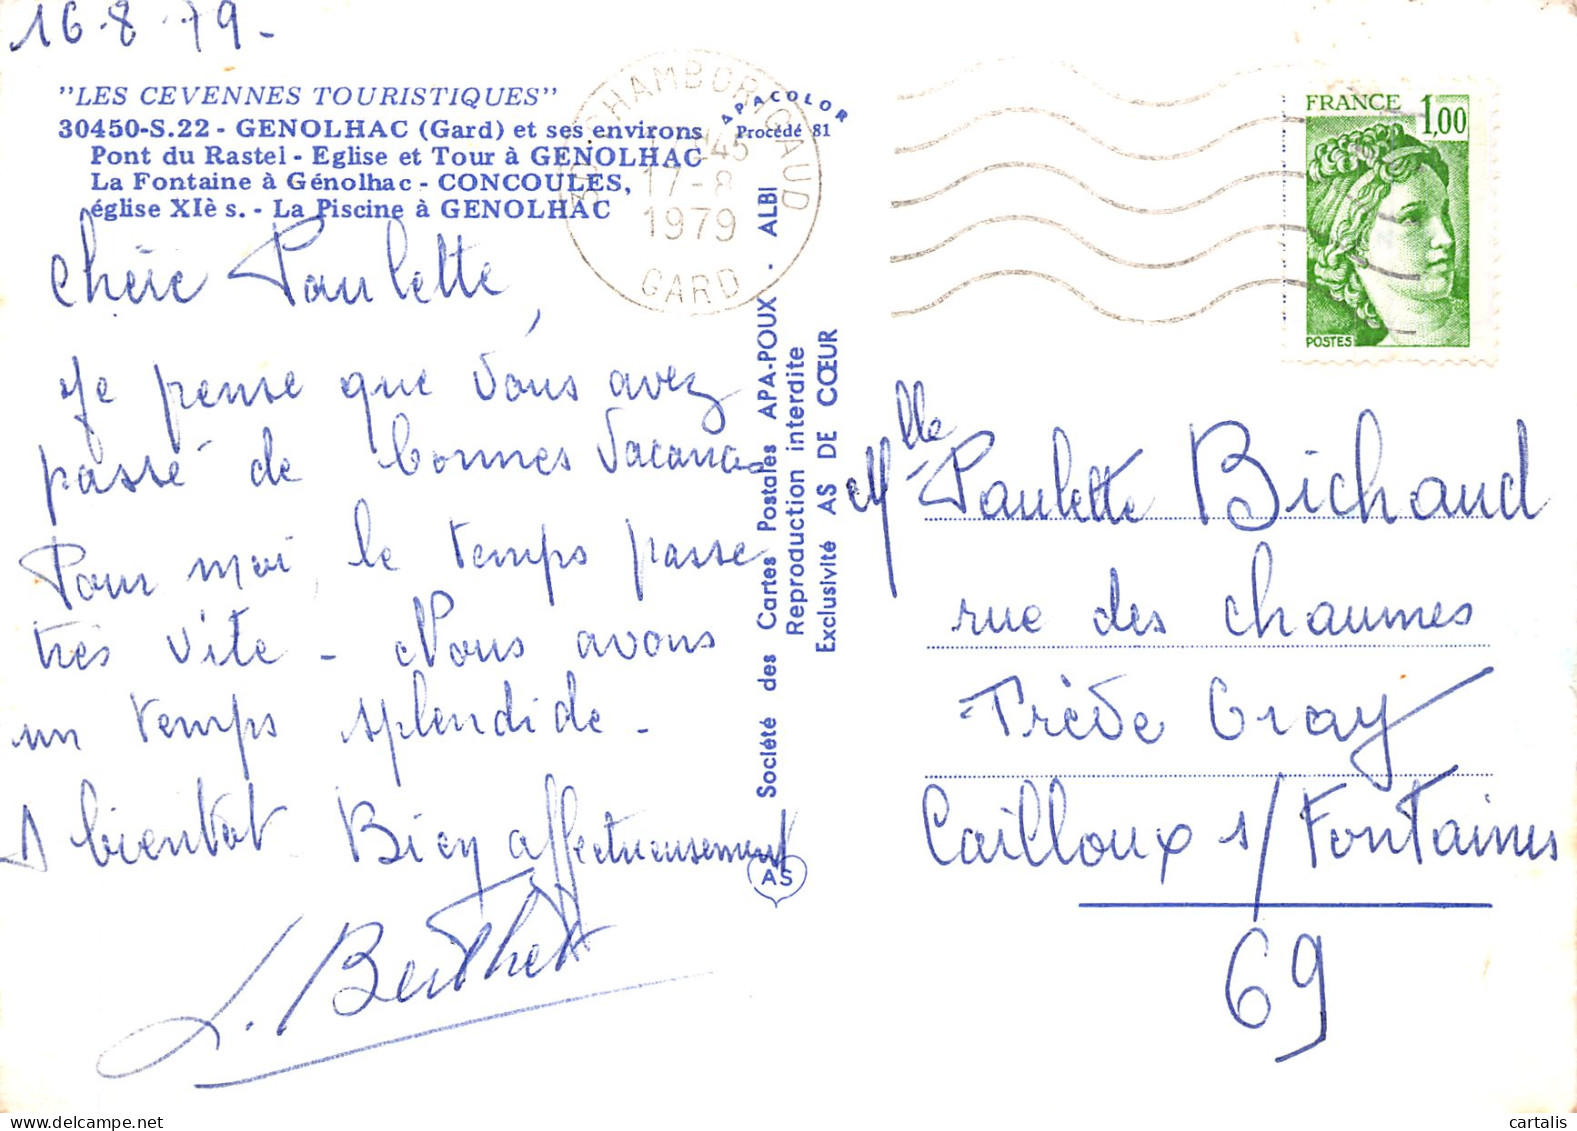 16-8-79-
"LES CEVENNES TOURISTIQUES"
30450-S.22 - GENOLHAC (Gard) et ses environs
Pont du Rastel - Eglise et Tour à GENOLHAC
La Fontaine à Génolhac - CONCOULES,
église XIè s. - La Piscine à GENOLHAC
APACOLOR
Procédé 81
CHAMBORIGAUD
45
17-8
1979
GARD
FRANCE 1,00
POSTES
Chère Paulette,
Je pense que vous avez
passé de bonnes vacances
Pour moi, le temps passe
très vite - Nous avons
un temps splendide -
A bientôt Bien affectueusement
L. Berthet
Société des Cartes Postales APA-POUX - ALBI
Reproduction interdite
Exclusivité AS DE CŒUR
AS
Mlle Paulette Bichaud
rue des chaumes
Gray
Cailloux s/ Fontaines
69
cartalis